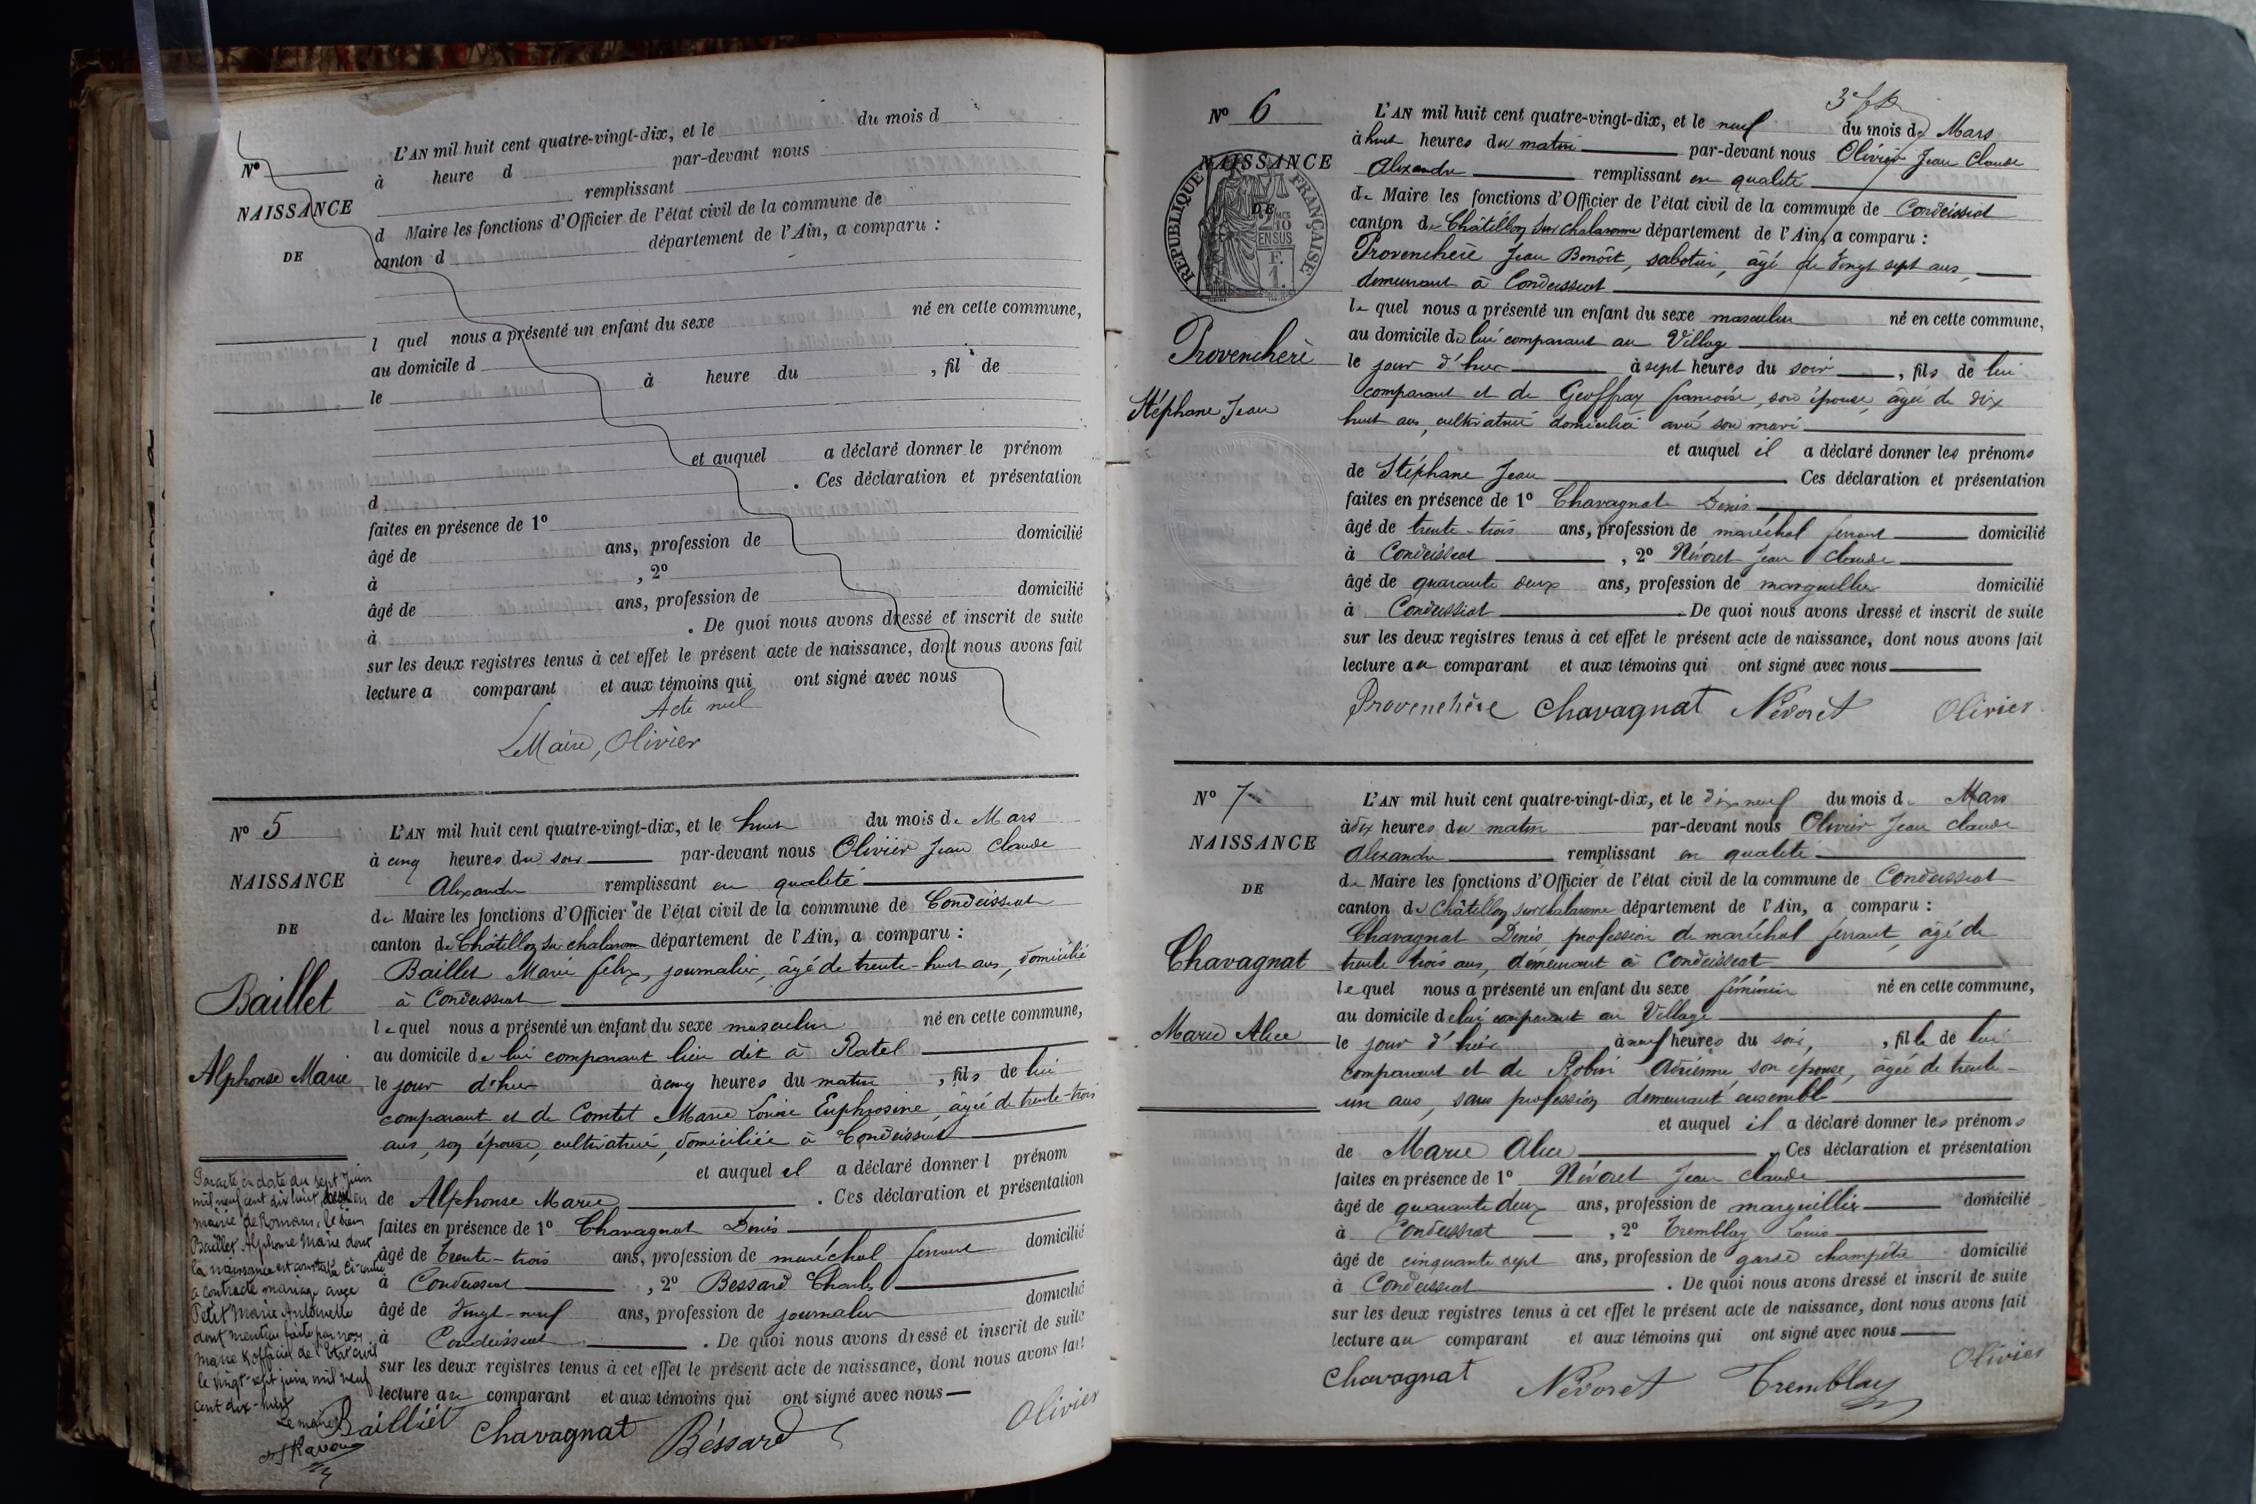 L'AN mil huit cent quatre-vingt-dix, et le du mois d
à heure d par-devant nous
remplissant
d Maire les fonctions d'Officier de l'état civil de la commune de
canton d département de l'Ain, a comparu :
N°
NAISSANCE
DE
l quel nous a présenté un enfant du sexe né en cette commune,
au domicile d
le à heure du , fil de
et auquel a déclaré donner le prénom
d . Ces déclaration et présentation
faites en présence de 1°
âgé de ans, profession de domicilié
à , 2°
âgé de ans, profession de domicilié
à . De quoi nous avons dressé et inscrit de suite
sur les deux registres tenus à cet effet le présent acte de naissance, dont nous avons fait
lecture a comparant et aux témoins qui ont signé avec nous
Acte nul
Le Maire, Olivier
N° 5
NAISSANCE
DE
Baillet
Alphonse Marie
L'AN mil huit cent quatre-vingt-dix, et le huit du mois de Mars
à cinq heures du soir par-devant nous Olivier Jean Claude
Alexandre remplissant en qualité
de Maire les fonctions d'Officier de l'état civil de la commune de Condeissiat
canton de Châtillon sur chalaronne département de l'Ain, a comparu :
Baillet Marie félix, journalier, âgé de trente-huit ans, domicilié
à Condeissiat
lequel nous a présenté un enfant du sexe masculin né en cette commune,
au domicile de lui comparant lieu dit à Ratel
le jour d'hier à cinq heures du matin , fils de lui
comparant et de Comtet Marie Louise Euphrosine, âgée de trente-trois
ans, son épouse, cultivatrice, domiciliée à Condeissiat
et auquel il a déclaré donner l prénom
de Alphonse Marie . Ces déclaration et présentation
faites en présence de 1° Chavagnat Denis
âgé de trente-trois ans, profession de maréchal ferrant domicilié
à Condeissiat , 2° Bessard Charles
âgé de vingt-neuf ans, profession de journalier domicilié
à Condeissiat . De quoi nous avons dressé et inscrit de suite
sur les deux registres tenus à cet effet le présent acte de naissance, dont nous avons fait
lecture au comparant et aux témoins qui ont signé avec nous
Bailliét Chavagnat Béssard Olivier
Par acte en date du sept Juin
mil neuf cent dix huit en
mairie de Romans, le sieur
Baillet Alphonse Marie dont
la naissance est constatée ci-contre
a contracté mariage avec
Petit Marie Antoinette
dont mention faite par nous
Maire & officier de l'Etat civil
le vingt-sept juin mil neuf
cent dix-huit
Le maire
N° 6
NAISSANCE
DE
RÉPUBLIQUE FRANÇAISE
2 10
MES
EN SUS
F.
1.
Provenchère
Stéphane Jean
L'AN mil huit cent quatre-vingt-dix, et le neuf du mois de Mars
à huit heures du matin par-devant nous Olivier Jean Claude
Alexandre remplissant en qualité
de Maire les fonctions d'Officier de l'état civil de la commune de Condeissiat
canton de Châtillon sur chalaronne département de l'Ain, a comparu :
Provenchère Jean Benoît, sabotier, âgé de vingt sept ans,
demeurant à Condeissiat
lequel nous a présenté un enfant du sexe masculin né en cette commune,
au domicile de lui comparant au Village
le jour d'hier à sept heures du soir , fils de lui
comparant et de Geoffray françoise, son épouse, âgée de dix
huit ans, cultivatrice domiciliée avec son mari
et auquel il a déclaré donner les prénoms
de Stéphane Jean Ces déclaration et présentation
faites en présence de 1° Chavagnat Denis
âgé de trente-trois ans, profession de maréchal ferrant domicilié
à Condeissiat , 2° Névoret Jean Claude
âgé de quarante deux ans, profession de marguillier domicilié
à Condeissiat . De quoi nous avons dressé et inscrit de suite
sur les deux registres tenus à cet effet le présent acte de naissance, dont nous avons fait
lecture au comparant et aux témoins qui ont signé avec nous
Provenchère Chavagnat Névoret Olivier
N° 7
NAISSANCE
DE
Chavagnat
Marie Alice
L'AN mil huit cent quatre-vingt-dix, et le dix neuf du mois de Mars
à dix heures du matin par-devant nous Olivier Jean Claude
Alexandre remplissant en qualité
de Maire les fonctions d'Officier de l'état civil de la commune de Condeissiat
canton de Châtillon sur chalaronne département de l'Ain, a comparu :
Chavagnat Denis, profession de maréchal ferrant, âgé de
trente trois ans, demeurant à Condeissiat
lequel nous a présenté un enfant du sexe féminin né en cette commune,
au domicile de lui comparant au Village
le jour d'hier à neuf heures du soir, , fille de lui
comparant et de Robin Adrienne, son épouse, âgée de trente-
un ans, sans profession demeurant ensemble
et auquel il a déclaré donner les prénoms
de Marie Alice Ces déclaration et présentation
faites en présence de 1° Névoret Jean Claude
âgé de quarante deux ans, profession de marguillier domicilié
à Condeissiat , 2° Tremblay Louis
âgé de cinquante sept ans, profession de garde champêtre domicilié
à Condeissiat . De quoi nous avons dressé et inscrit de suite
sur les deux registres tenus à cet effet le présent acte de naissance, dont nous avons fait
lecture au comparant et aux témoins qui ont signé avec nous
Chavagnat Névoret Tremblay Olivier